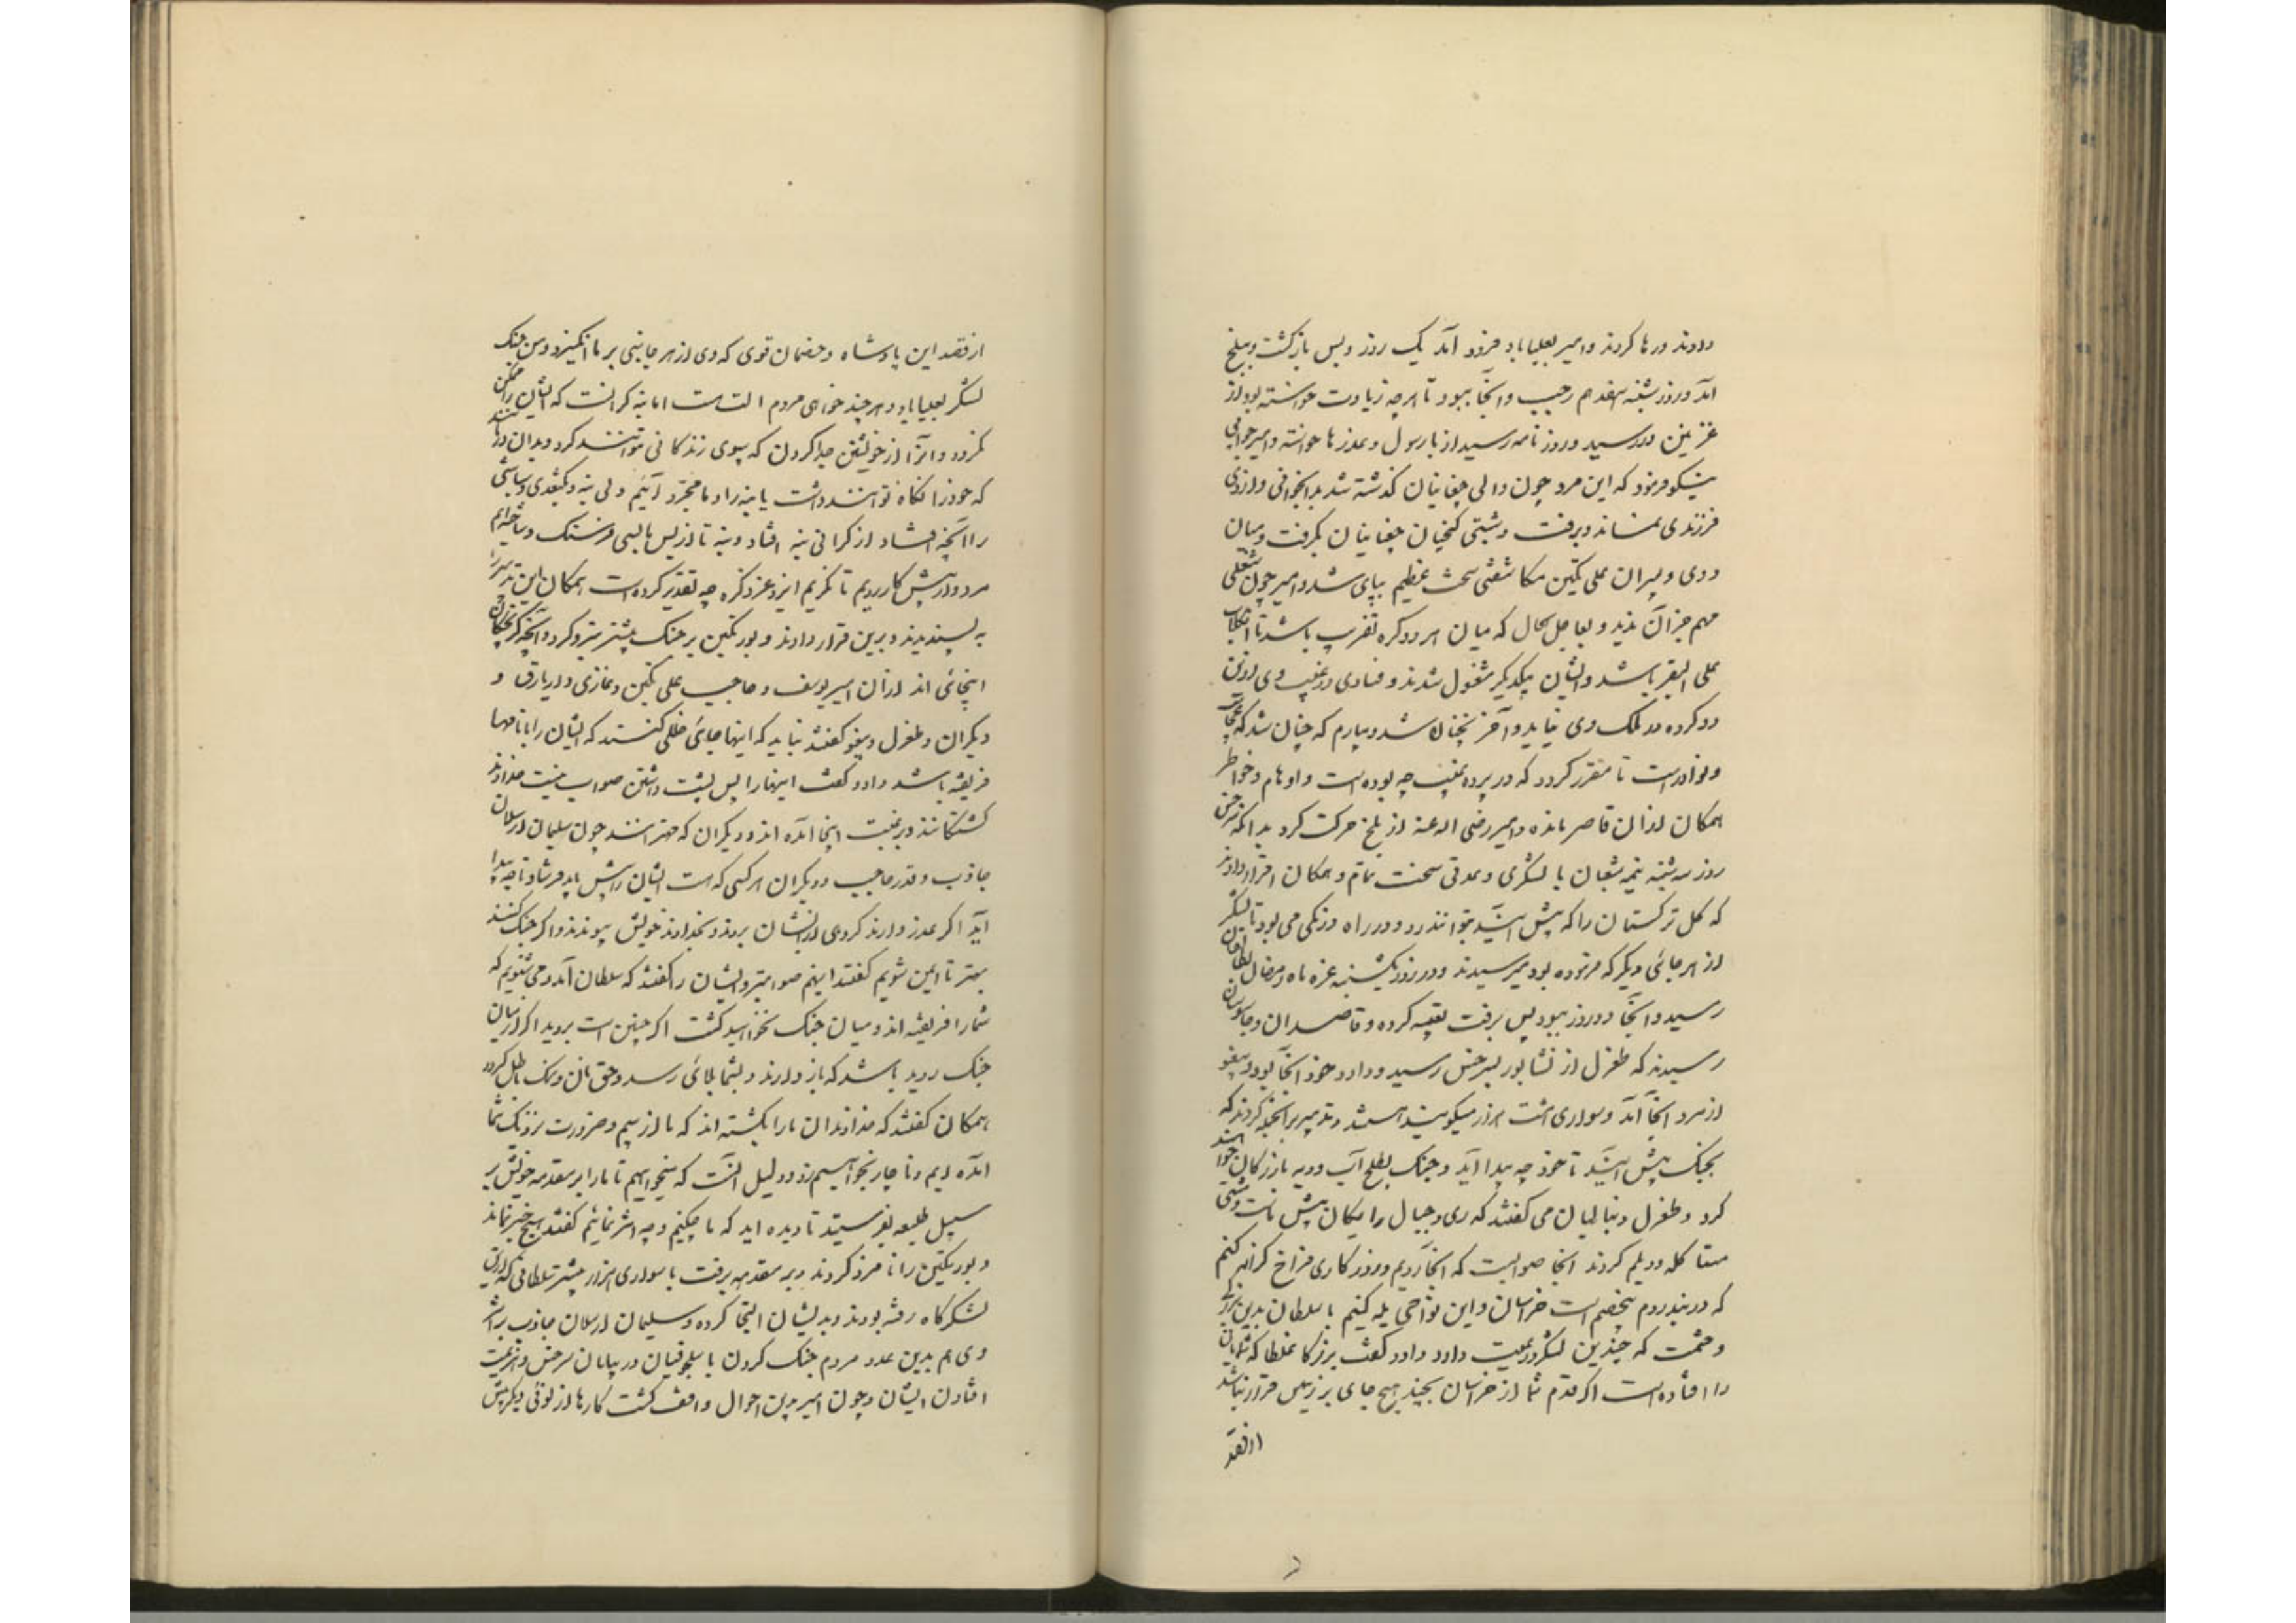 دادند و رها کردند و امیر بعلیاباد فرود آمد یک روز و پس بازگشت و ببلخ
آمد و روز شنبه هفدهم رجب و آنجا ببود تا هرچه زیادت خواسته بود از
غزنین در رسید و روز نامه رسید از با رسول و عذرها خواسته و امیر جوابی
نیکو فرمود که این مرد چون والی چغانیان گذشته شد بدانجوانی و از وی
فرزندی نماند و برفت و پشتی کنجیان چغانیان بگرفت و میان
وی و پسران علی تکین مکاشفتی سخت عظیم بپای شد و امیر چون شغلی
مهم جز آن ندید و بعاجل الحال که میان هر دو گره تضریب باشد تا
علی البقر باشد و ایشان بیکدیگر مشغول شدند و فسادی در غیبت وی ازین
دو گروه در ملک وی نیاید و آخر نچنان شد و بیارم که چنان شد که
و نوادر است تا مقرر گردد که در پرده غیب چه بوده است و اوهام و خواطر
همگان از آن قاصر مانده و امیر رضی الله عنه از بلخ حرکت کرد بدانکه
روز سه شنبه نیمه شعبان با لشکری و عدتی سخت تمام و همگان اقرار دادند
که کل ترکستان را که پیش آیند بتوانند زد و در راه درنگی می بود تا لشکر
از هر جائی دیگر که فرموده بود میرسیدند و در روز یکشنبه غره ماه رمضان بطالقان
رسید و آنجا دو روز ببود پس برفت تعبیه کرده و قاصدان و جاسوسان
رسیدند که طغرل از نشابور بسرخس رسید و داود خود آنجا بود و بیغو
از مرو آنجا آمد و سواری بیست هزار میگویند هستند و تدبیر بر آنجمله کردند که
بجنگ پیش آیند تا خود چه پیدا آید و جنگ بطلخ آب و دیه بازرگان خواهند
کرد و طغرل و ینالیان می گفتند که ری و جبال را پیش ماست و مشتی
مستا کله و دیلم کردند آنجا صوابست که آنجا رویم و روزگاری فراخ کرانه کنیم
که دربند روم بیخصم است خراسان و این نواحی یله کنیم با سلطان بدین بزرگی
و حشمت که چندین لشکر و رعیت دارد داود گفت بزرگا غلطا که شمایان
را افتاده است اگر قدم شما از خراسان بجنبد هیچ جای بر زمین قرار نباشد
از قصد
از قصد این پادشاه و خصمان قوی که وی از هر جانبی بر ما انگیزد و من جنگ
لشکر بعلیاباد و هر چند خواهی مردم و آلتست اما بنه گرانست که ایشان را ممکن
نگردد و آنرا از خویشتن جدا کردن که بیوی زندگانی نتوانند کرد و بدان درمانند
که خود را نگاه توانند داشت یا بنه را و ما مجرد آئیم و بی بنه و بکتغدی و سباشی
را آنچه افتاد از گرانی بنه افتاد و بنه تا از پس ما بسی فرسنگ و ساخته ایم
مردوار پیش کار رویم تا نگریم ایزد عز ذکره چه تقدیر کرده است همگان این تدبیر را
به پسندیدند و برین قرار دادند و بورتکین بر جنگ بیشتر نیرو کرد و آنچه گریختگان
اینجائی اند از آن امیر یوسف و حاجب علی تکین و غازی و اریارق و
دیگران و طغرل و بیغو گفتند نباید که اینها جائی خللی کنند که ایشان را بنامها
فریفته باشد داود گفت اینها را پس پشت داشتن صواب نیست خداوند
کشتگانند و برغبت اینجا آمده اند و دیگران که مهترانند چون سلیمان ارسلان
جاذب و قدر حاجب و دیگران هر کسی که هست ایشان را پیش باید فرستاد تا چه پیدا
آید اگر عذر دارند گروهی از ایشان بروند و بخداوند خویش پیوندند و اگر جنگ کنند
بهتر تا ایمن شویم گفتند اینهم صوابتر و ایشان را گفتند که سلطان آمد و می شنویم که
شما را فریفته اند و میان جنگ بخواهید گشت اگر چنین است بروید اگر از میان
جنگ روید باشد که باز دارند و بشما بلائی رسد و حق نان و نمک باطل گردد
همگان گفتند که خداوندان ما را بکشته اند که ما از بیم و ضرورت نزدیک شما
آمده ایم و تا جان بخواهیم زد و دلیل آنست که میخواهیم تا ما را بر مقدمه خویش بر
سبیل طلیعه بفرستید تا دیده اید که ما چکنیم و چه اثر نمائیم گفتند هیچ چیز نماند
و بورتکین را نامزد کردند و بر مقدمه برفت با سواری هزار بیشتر سلطانی که ازین
لشکرگاه رفته بودند و بدیشان التجا کرده و سلیمان ارسلان جاذب بر اثر
وی هم بدین عدد مردم جنگ کردن با سلجوقیان در بیابان سرخس و هزیمت
افتادن ایشان و چون امیر برین احوال واقف گشت کارها از نوعی دیگر پیش